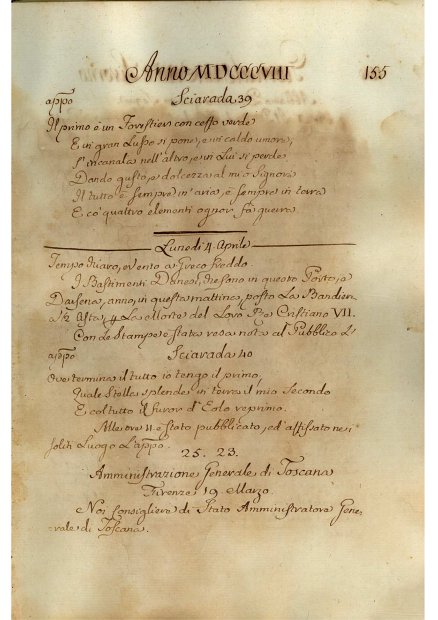 Anno MDCCCVIII 155
appo Sciarada 39
Il primo è un Forestier con ceffo verde
E in gran Lusso si pone, e in caldo umore,
S'incanala nell'altro, e in Lui si perde,
Dando gusto, e dolcezza al mio Signore
Il tutto è sempre in aria, è sempre in terra
E co' quattro elementi ognor fà guerra.
Lunedi 4 Aprile
Tempo chiaro, e Vento a Greco freddo
I Bastimenti Danesi, che sono in questo Porto, e
Darsena, anno, in questa mattina, posto La Bandiera
a ½ Asta, La Morte del Loro Re Cristiano VII.
Con le Stampe è stata resa nota al Pubblico L'
appo Sciarada 40
Ove termina il tutto io tengo il primo,
Quale Stella splende in terra il mio Secondo
E col tutto il furor d'Eolo reprimo.
Alle ore 11 è stato pubblicato, ed affissato nei
soliti Luoghi L'appo.
25. 23.
Amministrazione Generale di Toscana
Firenze 19 Marzo
Noi Consigliere di Stato Amministratore Gene-
rale di Toscana.